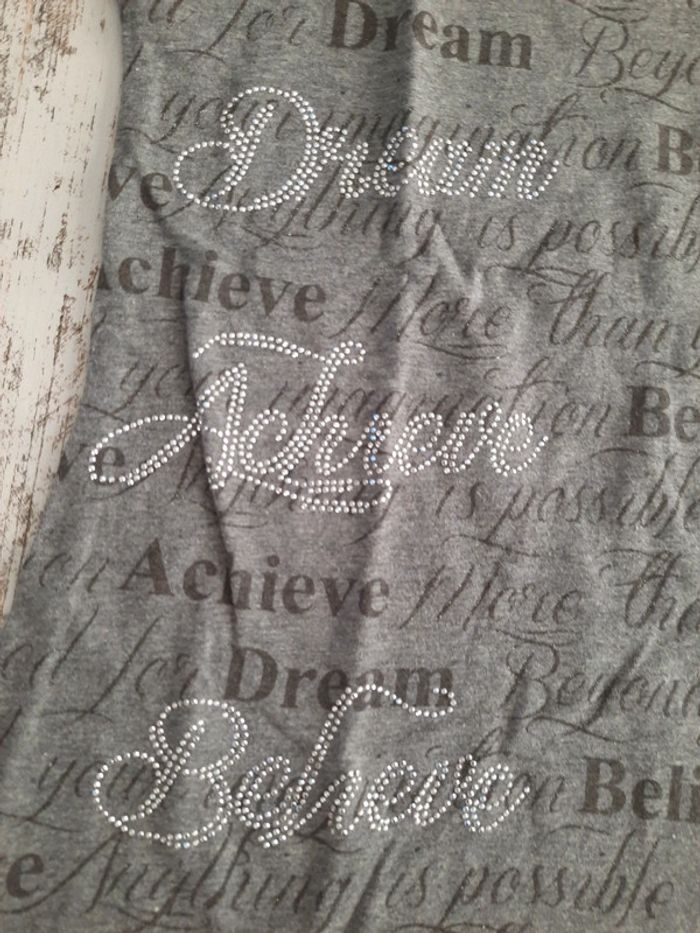 for Dream Beyo
your imagination B
Dream
ve Anything is possib
Achieve More than
your imagination Be
Achieve
ve Anything is possib
Achieve More tha
for Dream Beyon
your imagination Beli
Believe
e Anything is possible